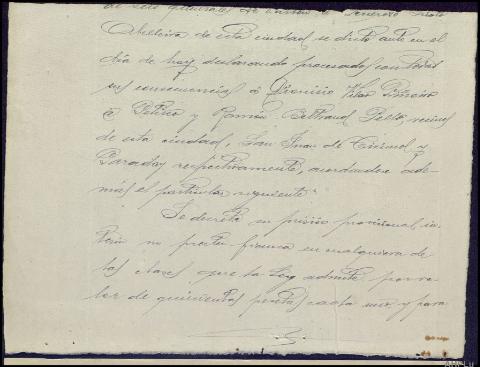 de seis quintales de carbon a Generoso Prieto
Abelleira de esta ciudad se dictó auto en el
dia de hoy declarando procesados con todas
sus consecuencias á Dionisio Vilar Piñeiro
á Petisco y Ramón Beltraud Pello, vecinos
de esta ciudad, San Juan de y
Paraday respectivamente, acordandose ade-
mas el particular siguiente.
Se decreta su prisión provisional, in-
terin no presten fianza en cualquiera de
las clases que la Ley admite por va-
lor de quinientas pesetas cada uno y para